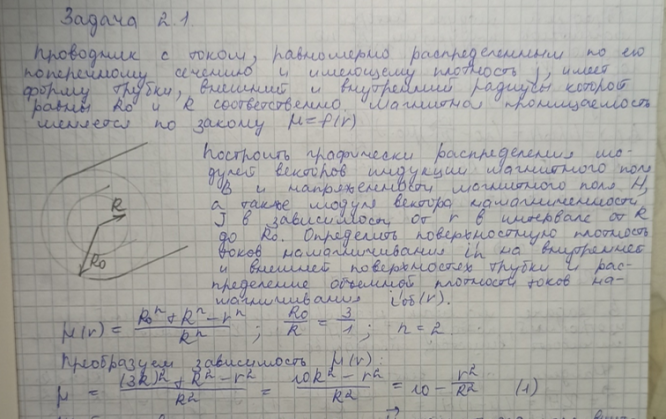 Задача 2.1
Проводник с током, равномерно распределенным по его
поперечному сечению и имеющему плотность j, имеет
форму трубки, внешний и внутренний радиусы которой
равны R0 и R соответственно. Магнитная проницаемость
меняется по закону μ=f(r)
Построить графически распределения мо-
дулей векторов индукции магнитного поля
B и напряженности магнитного поля H,
а также модуля вектора намагниченности
J в зависимости от r в интервале от R
до R0. Определить поверхностную плотность
токов намагничивания iн на внутренней
и внешней поверхностях трубки и рас-
пределение объемной плотности токов на-
магничивания iоб(r).
R
R0
μ(r) = (R0^n + R^n - r^n)/R^n ; R0/R = 3/1 ; n = 2.
Преобразуем зависимость μ(r):
μ = ((3R)^2 + R^2 - r^2)/R^2 = (10R^2 - r^2)/R^2 = 10 - r^2/R^2 (1)